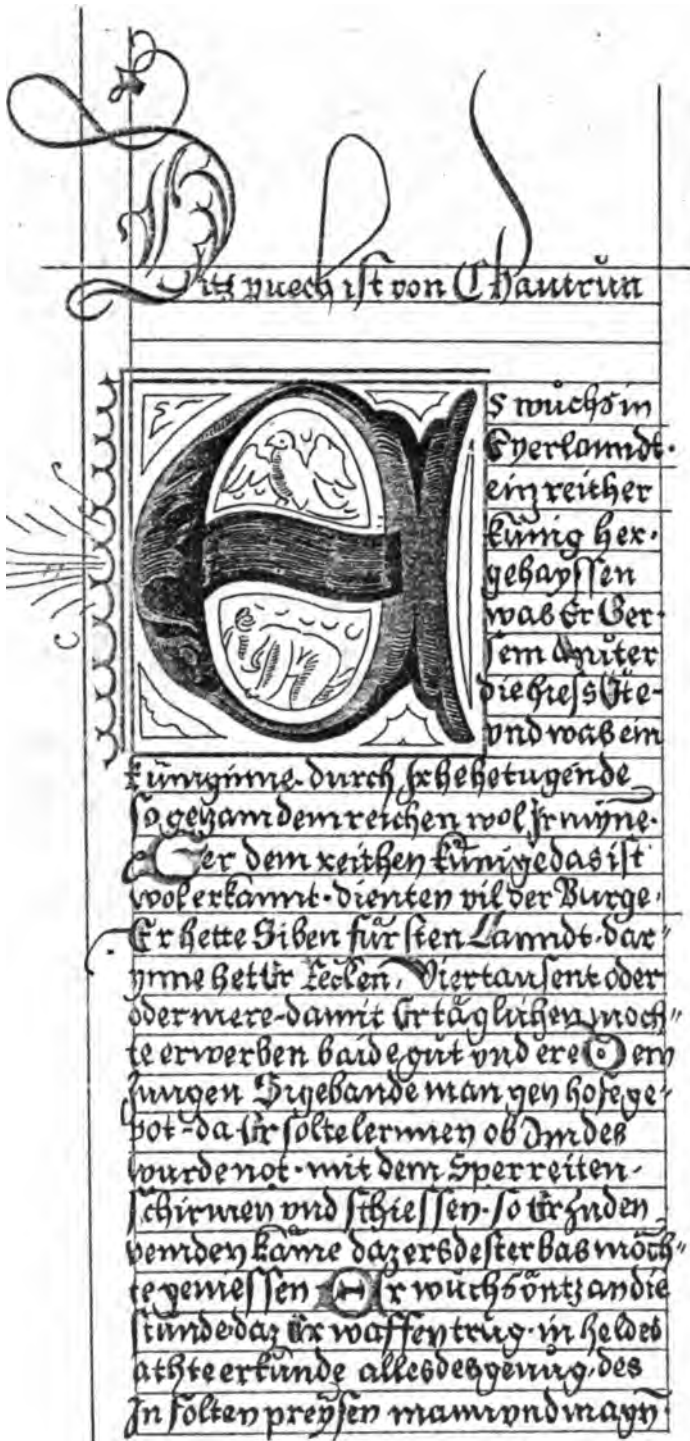 Ditz puech ist von Chautrŭn
ES wŭchs in
Eyerlanndt.
ein reicher
kŭnig her.
gehayssen
was Er Ger.
sein Mŭter
die hiess Ŭte.
vnd was ein
kŭniginne. durch Ir hohe tugende
so gezam dem reichen wol Ir mynne.
Ger dem reichen kŭnige das ist
wol erkannt. dienten vil der Burge.
Er hette Siben fŭrsten Lanndt. dar"
ynne het Er Recken, Viertausent oder
oder mere. damit Er tăglichen moch"
te erwerben baide gŭt vnd ere Dem
Jungen Sigebande man gen hofe ge"
pot. da Er solte lernnen ob Im des
wurde not. mit dem Sper reiten.
schirmen vnd schiessen. so Er zu den
veinden käme daz ers dester bas möch"
te geniessen Er wŭchs ŭntz an die
stŭnde. daz Er waffen trŭg. in heldes
achte erkunde alles des genŭg. des
In solten preysen man vnd mayn